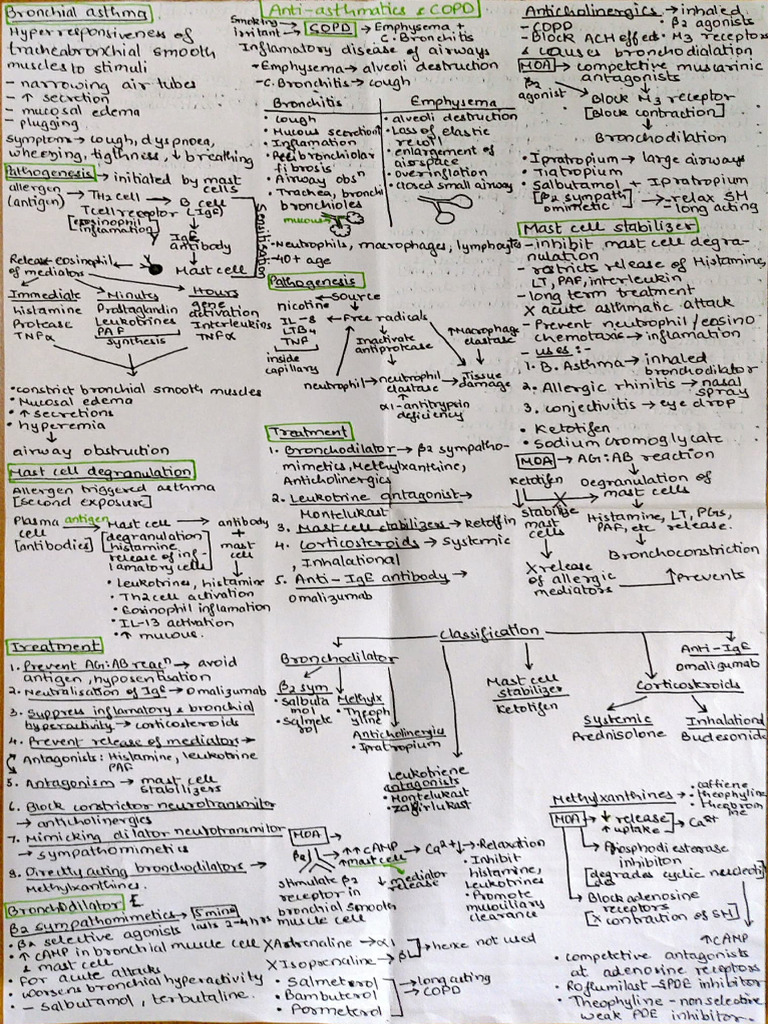 Bronchial asthma
Hyperresponsiveness of
tracheabronchial smooth
muscles to stimuli
- narrowing air tubes
- ↑ secretion
- mucosal edema
- plugging
Symptoms → cough, dyspnoea,
wheezing, tightness, ↓ breathing
Pathogenesis → initiated by mast
cells
allergen → TH2 cell → B cell
(antigen) Tcell receptor (IgE)
[eosinophil
inflamation]
IgE
antibody
Sensitization
Release eosinophil
of mediators
Mast cell
Immediate Minutes Hours
histamine Prostaglandin gene
Protease Leukotrines activation
TNFα PAF Interleukins
synthesis TNFα
• constrict bronchial smooth muscles
• Mucosal edema
• ↑ secretions
• hyperemia
↓
airway obstruction
Mast cell degranulation
Allergen triggered asthma
[second exposure]
Plasma antigen Mast cell → antibody
cell [degranulation] +
[antibodies] histamine mast
release of inf- cell
lamatory cells]
• Leukotrines, histamine
• Th2 cell activation
• Eosinophil inflamation
• IL-13 activation
• ↑ mucous.
Treatment
1. Prevent AG:AB reacn → avoid
antigen, hyposentisation
2. Neutralisation of IgE → Omalizumab
3. Suppress inflamatory & bronchial
hyperactivity → corticosteroids
4. Prevent release of mediator →
Antagonists: Histamine, leukotrine
PAF
5. Antagonism → mast cell
stabilizers
6. Block constrictor neurotransmitor
→ anticholinergics
7. Mimicking dilator neurotransmitor
→ sympathomimetics
8. Directly acting bronchodilators →
Methylxanthines.
Bronchodilator
β2 sympathomimetics → 5 mins lasts 2-4 hrs
• β2 selective agonists
• ↑ cAMP in bronchial muscle cell
& mast cell
• for acute attacks
• worsens bronchial hyperactivity
- salbutamol, terbutaline.
Anti-asthmatics & COPD
Smoking → COPD → Emphysema +
irritant C. Bronchitis
Inflamatory disease of airways
- Emphysema → alveoli destruction
- C. Bronchitis → cough
Bronchitis Emphysema
• cough • alveoli destruction
• Mucous secretion • Loss of elastic
• Inflamation recoil
bronchiolar • enlargement of
fibrosis airspace
• Airway obsn • overinflation
• Trachea, bronchi • closed small airway
bronchioles
mucous
- Neutrophils, macrophages, lymphocytes
- 40+ age
Pathogenesis
Source
nicotine
IL-8 ← Free radicals
LTB4
TNF
inside
capillary
Inactivate
antiprotease
↑ Macrophage
elastase
neutrophil → neutrophil → Tissue
elastase damage
↑
α1-antitrypsin
deficiency
Treatment
1. Bronchodilator → β2 sympatho-
mimetics, Methylxanthine,
Anticholinergics
2. Leukotrine antagonist →
Montelukast
3. Mast cell stabilizers → ketotifn
4. Corticosteroids → Systemic
, Inhalational
5. Anti-IgE antibody →
Omalizumab
Classification
Bronchodilator
β2 sym
• Salbuta
mol
• Salmete
rol
Methylx
• Theoph
ylline
Anticholinergics
• Ipratropium
Leukotriene
antagonists
• Montelukast
• Zafirlukast
Mast cell
stabilizer
Ketotifen
Anti-IgE
omalizumab
Corticosteroids
Systemic Inhalational
Prednisolone Budesonide
MOA
β2
stimulate β2
receptor in
bronchial smooth
muscle cell
→ ↑↑ cAMP → Ca2+↓ → Relaxation
↑ mast cell
↓ mediator
release
• Inhibit
histamine,
Leukotrines
• Promote
mucuciliary
clearance
X Adrenaline → α1
X Isoprenaline → β
hence not used
• Salmeterol
• Bambuterol
• Formeterol
→ long acting
→ COPD
Anticholinergics → inhaled,
- COPD • β2 agonists
- Block ACH effect • M3 receptors
& causes bronchodialation
MOA → competetive muscarinic
antagonists
β2
agonist
Block M3 receptor
[Block contraction]
↓
Bronchodilation
• Ipratropium → large airways
• Tiatropium
• Salbutamol + Ipratropium
[β2 sympath
omimetic]
→ relax SM
- long acting
Mast cell stabilizer
- inhibit mast cell degra-
nulation
- restricts release of Histamine,
LT, PAF, interleukin
- long term treatment
X acute asthmatic attack
- Prevent neutrophil/eosino
chemotaxis → inflamation
- uses:-
1. B. Asthma → inhaled
bronchodilator
2. Allergic rhinitis → nasal
spray
3. conjectivitis → eye drop
• Ketotifen
• Sodium cromoglycate
MOA → AG:AB reaction
ketotifen
↓
Degranulation of
mast cells
stabilize
mast
cells
Histamine, LT, PGs,
PAF, etc release.
↓
Bronchoconstriction
X release
of allergic
mediators
↑ Prevents
Methylxanthines → • caffiene
• theophyline
• Theobrom
ine
MOA → ↓ release
↑ uptake → Ca2+
→ Phosphodiesterase
inhibiton
[degrades cyclic nucleoti
des]
→ Block adenosine
receptors
[X contraction of SM]
↑ cAMP
• competetive antagonists
at adenosine receptors
• Roflumilast - SPDE inhibitor
• Theophylline - non selective
weak PDE inhibitor.